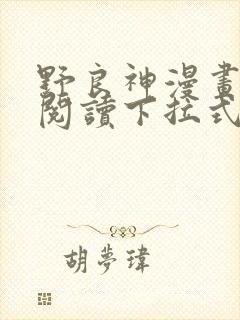 野良神漫畫
閱讀下拉式
胡夢瑋